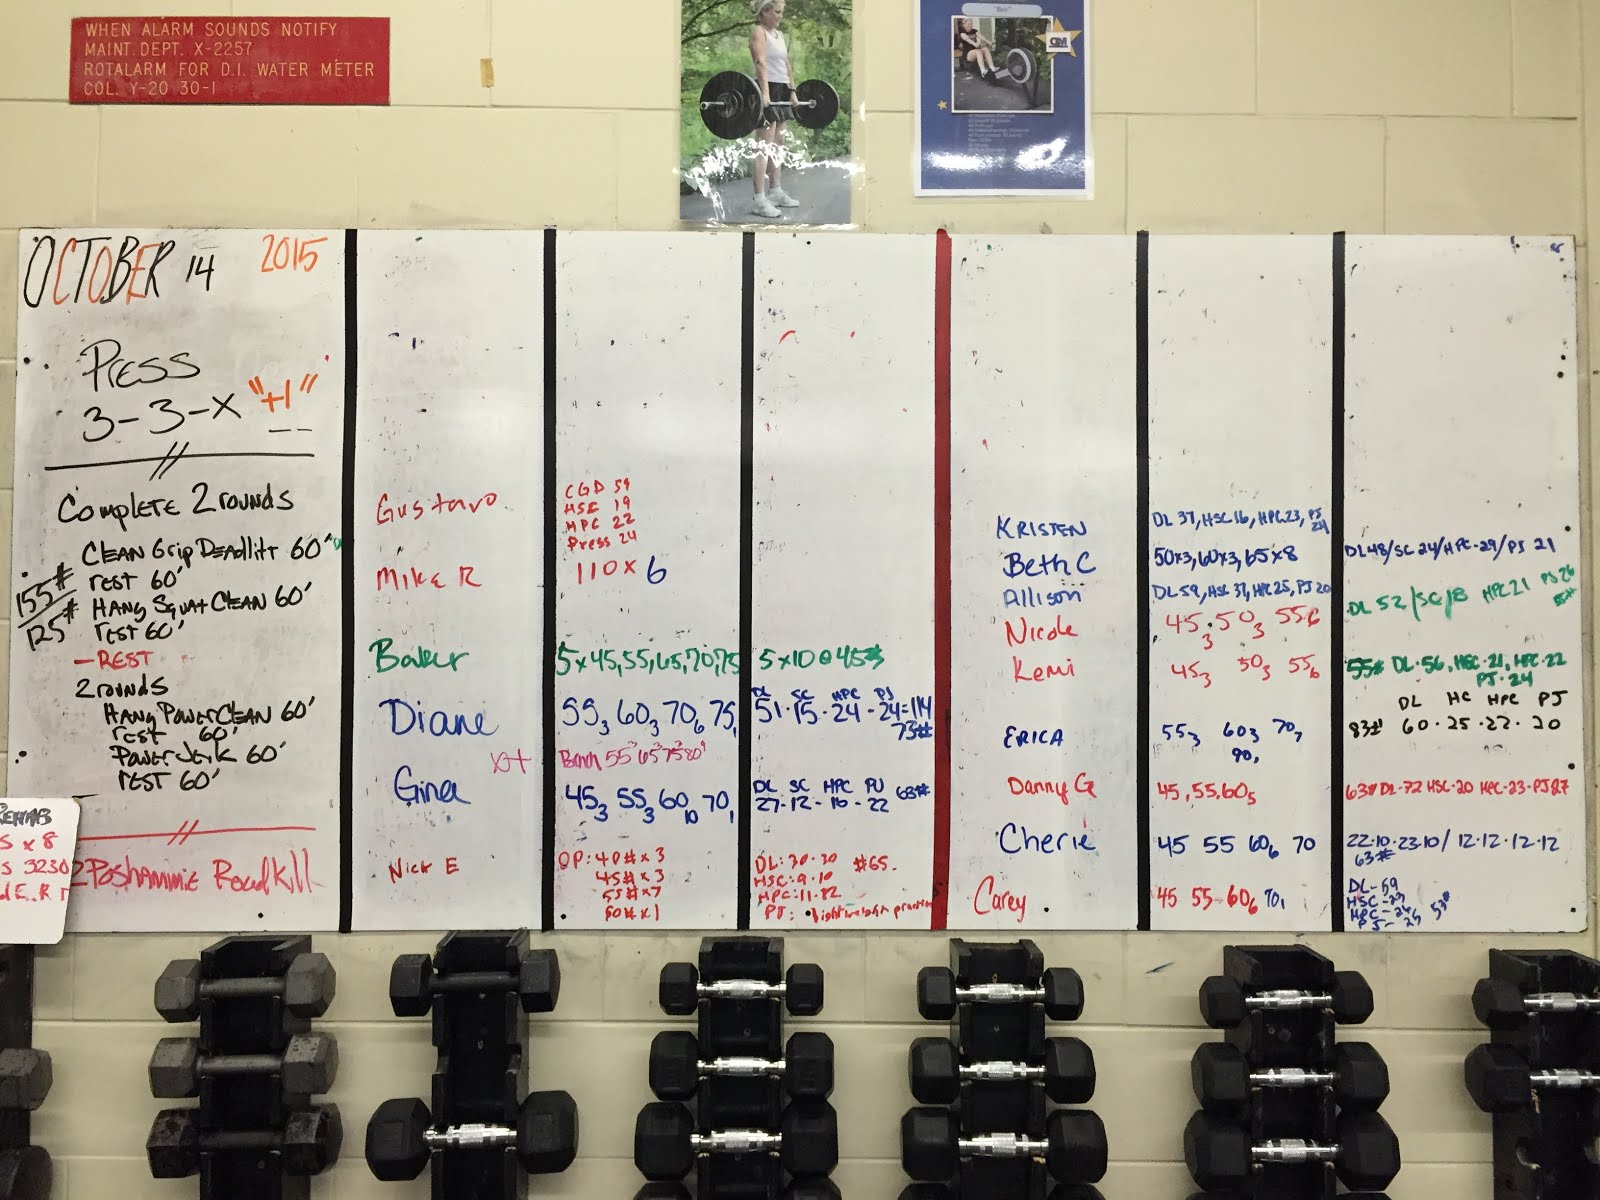 WHEN ALARM SOUNDS NOTIFY
MAINT. DEPT. X-2257
ROTALARM FOR D.I. WATER METER
COL. Y-20 30-1
OCTOBER 14 2015
PRESS
3-3-X "+1"
COMPLETE 2 ROUNDS
CLEAN Grip Deadlift 60'
rest 60'
155#
125#
HANG SQUAT CLEAN 60'
rest 60'
- REST
2 rounds
HANG POWER CLEAN 60'
rest 60'
POWER Jerk 60'
rest 60'
S x 8
S 3230
2 Poshammie Roadkill
Gustavo
CGD 59
HSC 19
HPC 22
Press 24
Mike R
110 x 6
5x45,55,65,70,75
5x10@45#
Diane
55₃ 60₃ 70₆ 75₁
DL SC HPC PJ
51·15·24-24=114
73#
Bench 55 65 75 80
Gina
45₃ 55₃ 60₁₀ 70₁
DL SC HPC PJ
27-12-16-22 63#
Nick E
OP: 40# x 3
45# x 3
55# x 7
50# x 1
DL: 30-30 #65.
HSC: 9-10
HPC: 11-
PJ: lightweight practice
KRISTEN
DL 37, HSC 16, HPC 23, PJ 24
Beth C
50x3, 60x3, 65x8
DL48/SC 24/HPC-29/PJ 21
Allison
DL 59, HSC 37, HPC 25, PJ 20
DL 52/SC 18 HPC 21 PJ 26
Nicole
45₃ 50₃ 55₆
Kemi
45₃ 50₃ 55₆
55# DL-56, HSC-21, HPC-22
PJ-24
ERICA
55₃ 60₃ 70₇
90₁
DL HC HPC PJ
83# 60·25·22·20
Danny G
45, 55, 60₅
63# DL-72 HSC-20 HPC-23-PJ27
Cherie
45 55 60₆ 70
22·10·23·10 / 12·12·12·12
63#
Carey
45 55-60₆ 70₁
DL-59
HSC-23
HPC-26
PJ-25 53#